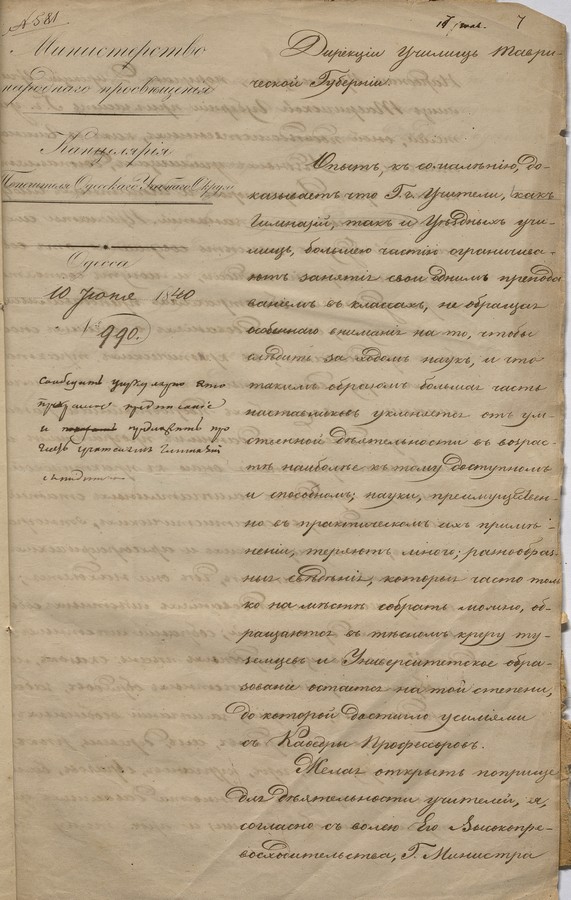 № 581
7
Министерство
народнаго просвѣщенія
Канцелярія
Попечителя Одесскаго Учебнаго Округа
Одесса
10 Іюня 1840
990.
Сообщить
и предложить
Дирекціи Училищъ Таври-
ческой Губерніи.
Опытъ, къ сожалѣнію, до-
казываетъ что Г.г. Учители, какъ
Гимназій, такъ и Уѣздныхъ учи-
лищъ, большею частію ограничива-
ютъ занятія свои однимъ препода-
ваніемъ въ классахъ, не обращая
особеннаго вниманія на то, чтобы
слѣдить за ходомъ наукъ, и что
такимъ образомъ большая часть
наставниковъ уклоняется отъ ум-
ственной дѣятельности въ возрас-
тѣ наиболѣе къ тому доступномъ
и способномъ; науки, преимуществен-
но въ практическомъ ихъ примѣ-
неніи, теряютъ много; разнообраз-
ныя свѣдѣнія, которыя часто толь
ко на мѣстѣ собрать можно, об-
ращаются въ тѣсномъ кругу ту-
земцевъ и Университетское обра-
зованіе остается на той степени,
до которой достигло усиліями
съ Кафедры Профессоровъ.
Желая открыть поприще
для дѣятельности учителей, я,
согласно съ волею Его Высокопре-
восходительства, Г. Министра